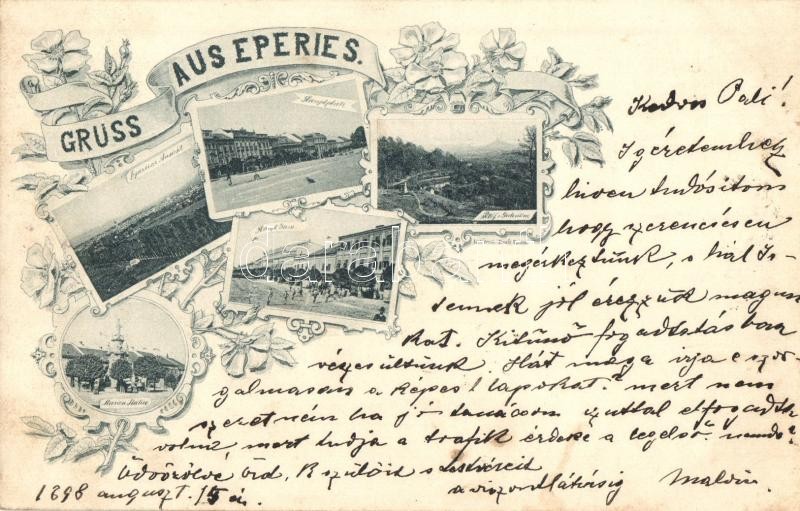 GRUSS AUS EPERIES.
Hauptplatz
darabanth
Kedves Pali!
Igéretemhez
hiven tudósitom
hogy szerencsésen
megérkeztünk, s hál Is-
tennek jól érezzük magun
kat. Kitünő fogadtatásban
részesültünk. Hát maga irja e szor-
galmasan a képes l. lapokat? mert nem
szeretném ha jó tanácsom uttal elfogadta
volna mert tudja a trafik érdeke a legelső. nemde?
Üdvözölve Önöket, K. szülőit s testvéreit
a viszontlátásig Malvin
1898 auguszt. 15 én